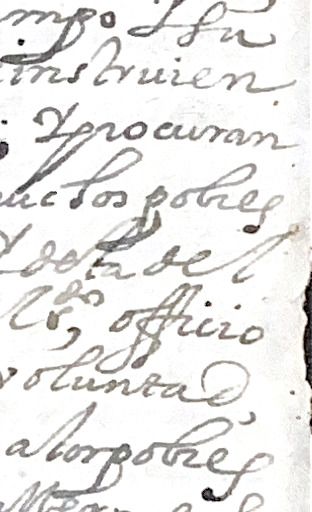 mpo y su
instruien
y procuran
muchos pobres
y desta del
officio
voluntad,
a los pobres